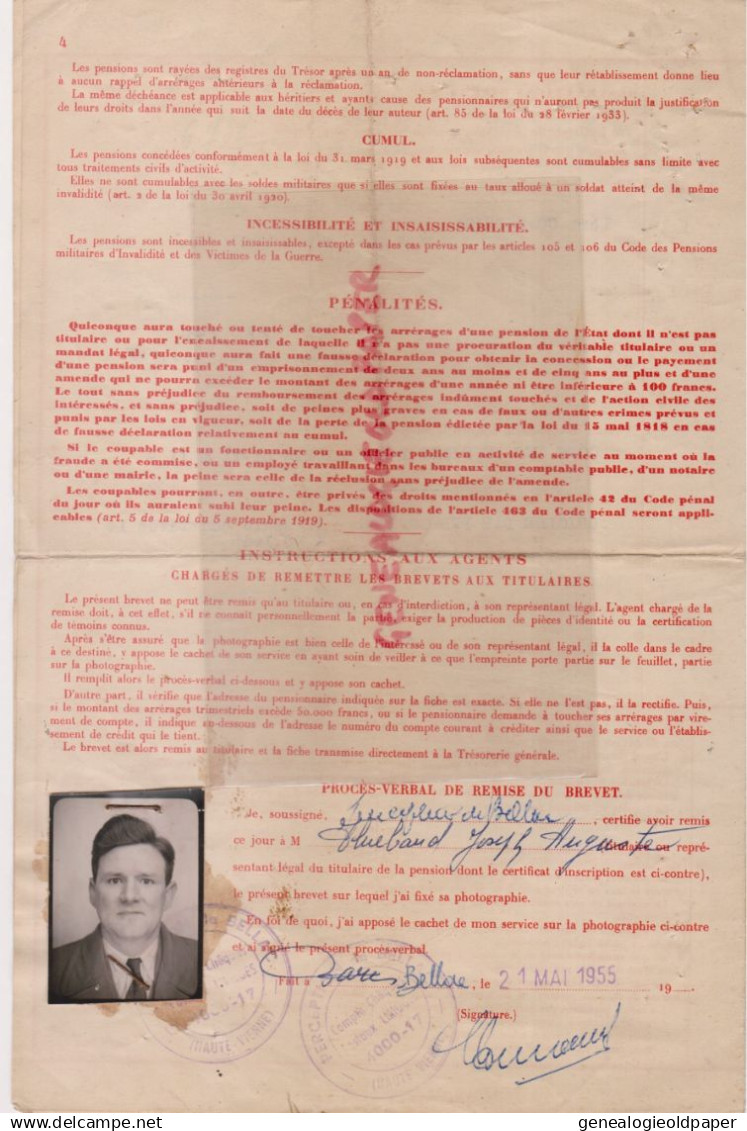 4
Les pensions sont rayées des registres du Trésor après un an de non-réclamation, sans que leur rétablissement donne lieu
à aucun rappel d'arrérages antérieurs à la réclamation.
La même déchéance est applicable aux héritiers et ayants cause des pensionnaires qui n'auront pas produit la justification
de leurs droits dans l'année qui suit la date du décès de leur auteur (art. 85 de la loi du 28 février 1933).
CUMUL.
Les pensions concédées conformément à la loi du 31 mars 1919 et aux lois subséquentes sont cumulables sans limite avec
tous traitements civils d'activité.
Elles ne sont cumulables avec les soldes militaires que si elles sont fixées au taux alloué à un soldat atteint de la même
invalidité (art. 2 de la loi du 30 avril 1920).
INCESSIBILITÉ ET INSAISISSABILITÉ.
Les pensions sont incessibles et insaisissables, excepté dans les cas prévus par les articles 105 et 106 du Code des Pensions
militaires d'Invalidité et des Victimes de la Guerre.
PÉNALITÉS.
Quiconque aura touché ou tenté de toucher les arrérages d'une pension de l'État dont il n'est pas
titulaire ou pour l'encaissement de laquelle il n'a pas une procuration du véritable titulaire ou un
mandat légal, quiconque aura fait une fausse déclaration pour obtenir la concession ou le payement
d'une pension sera puni d'un emprisonnement de deux ans au moins et de cinq ans au plus et d'une
amende qui ne pourra excéder le montant des arrérages d'une année ni être inférieure à 100 francs.
Le tout sans préjudice du remboursement des arrérages indûment touchés et de l'action civile des
intéressés, et sans préjudice, soit de peines plus graves en cas de faux ou d'autres crimes prévus et
punis par les lois en vigueur, soit de la perte de la pension édictée par la loi du 15 mai 1818 en cas
de fausse déclaration relativement au cumul.
Si le coupable est un fonctionnaire ou un officier public en activité de service au moment où la
fraude a été commise, ou un employé travaillant dans les bureaux d'un comptable public, d'un notaire
ou d'une mairie, la peine sera celle de la réclusion sans préjudice de l'amende.
Les coupables pourront, en outre, être privés des droits mentionnés en l'article 42 du Code pénal
du jour où ils auraient subi leur peine. Les dispositions de l'article 463 du Code pénal seront appli-
cables (art. 5 de la loi du 5 septembre 1919).
INSTRUCTIONS AUX AGENTS
CHARGÉS DE REMETTRE LES BREVETS AUX TITULAIRES
Le présent brevet ne peut être remis qu'au titulaire ou, en cas d'interdiction, à son représentant légal. L'agent chargé de la
remise doit, à cet effet, s'il ne connaît personnellement la partie, exiger la production de pièces d'identité ou la certification
de témoins connus.
Après s'être assuré que la photographie est bien celle de l'intéressé ou de son représentant légal, il la colle dans le cadre
à ce destiné, y appose le cachet de son service en ayant soin de veiller à ce que l'empreinte porte partie sur le feuillet, partie
sur la photographie.
Il remplit alors le procès-verbal ci-dessous et y appose son cachet.
D'autre part, il vérifie que l'adresse du pensionnaire indiquée sur la fiche est exacte. Si elle ne l'est pas, il la rectifie. Puis,
si le montant des arrérages trimestriels excède 50.000 francs, ou si le pensionnaire demande à toucher ses arrérages par vire-
ment de compte, il indique au-dessous de l'adresse le numéro du compte courant à créditer ainsi que le service ou l'établis-
sement de crédit qui le tient.
Le brevet est alors remis au titulaire et la fiche transmise directement à la Trésorerie générale.
PROCÈS-VERBAL DE REMISE DU BREVET.
Je, soussigné, Percepteur de Bellac, certifie avoir remis
ce jour à M Thiebaud Joseph Auguste titulaire ou repré-
sentant légal du titulaire de la pension dont le certificat d'inscription est ci-contre),
le présent brevet sur lequel j'ai fixé sa photographie.
En foi de quoi, j'ai apposé le cachet de mon service sur la photographie ci-contre
et ai signé le présent procès-verbal
Fait à Bellac, le 21 MAI 1955 19
(Signature.)
BELLAC
4000-17
(HAUTE-VIENNE)
4000-17
genealogieoldpaper